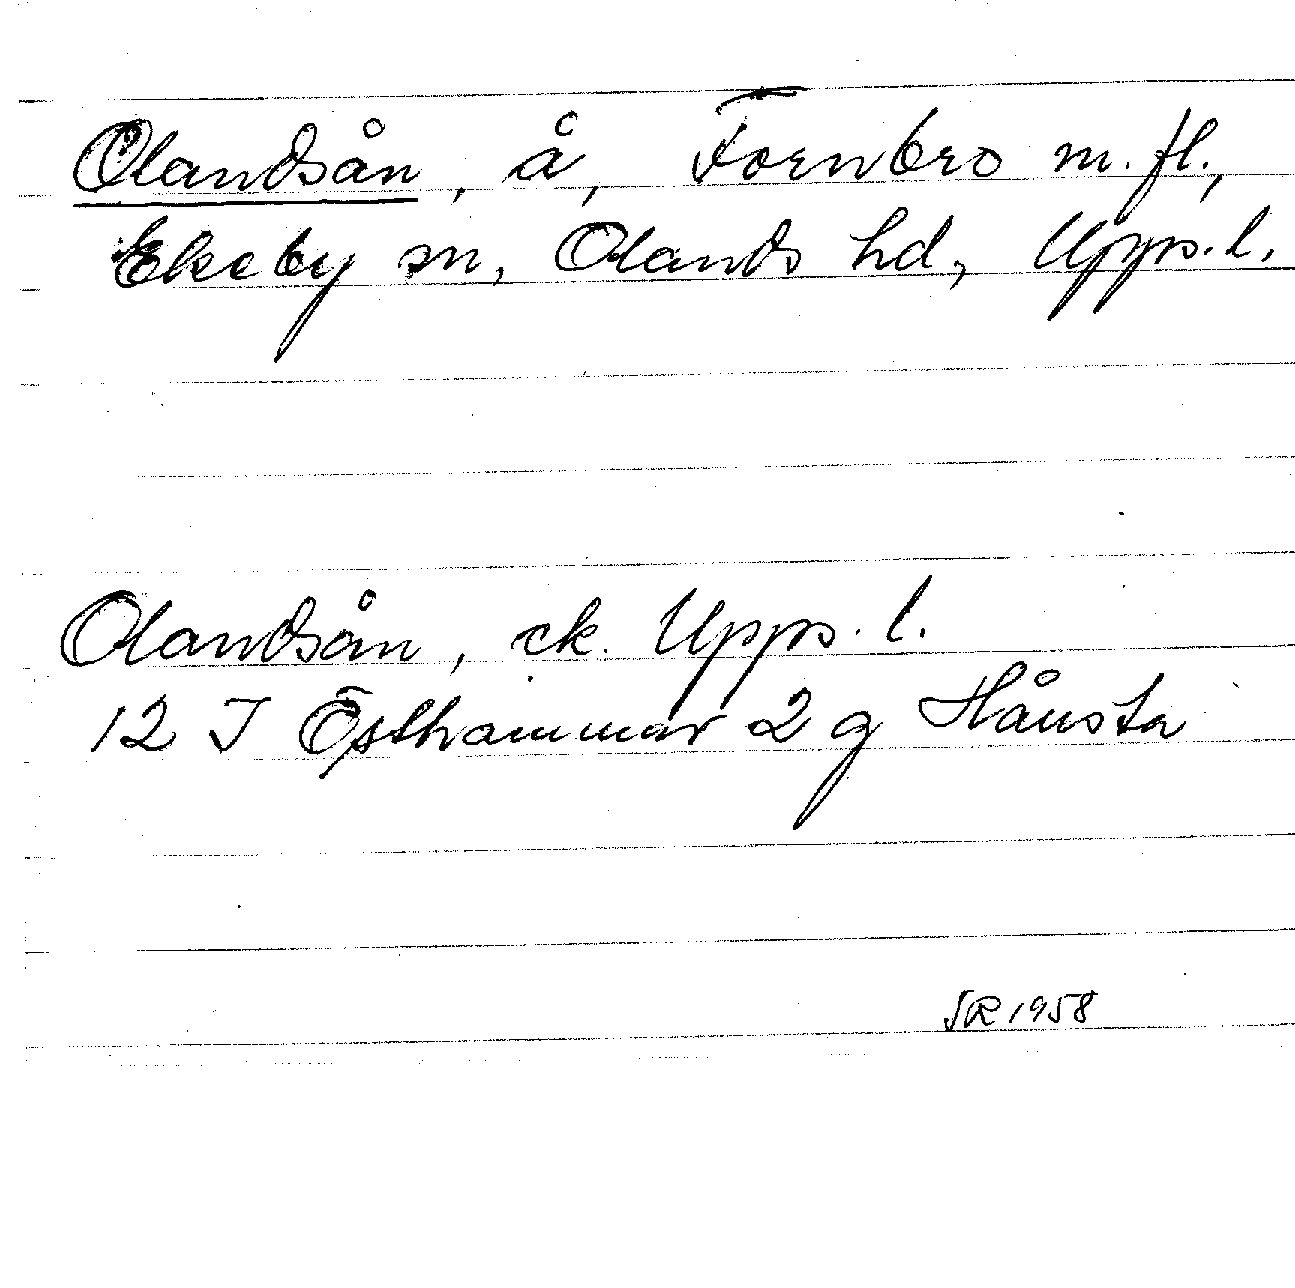 Olandsån, å, Fornbro m. fl.,
Ekeby sn, Olands hd, Upps. l.
Olandsån, ek. Upps. l.
12 I Östhammar 2 g Hånsta
SR 1958